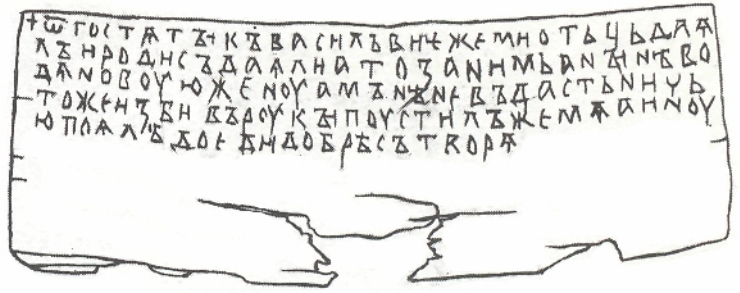 +ѿгостѧтъıкъвасильвиѥжемиотьцьдаѧ
лъиродисъдаѧлиатозанимьанъıнѣво
дѧновоуюженоуамънѣневъдастьничь
тожеизбивъроукъıпоустилъжемѧаиноу
юпоѧлъдоедидобрѣсътворѧ